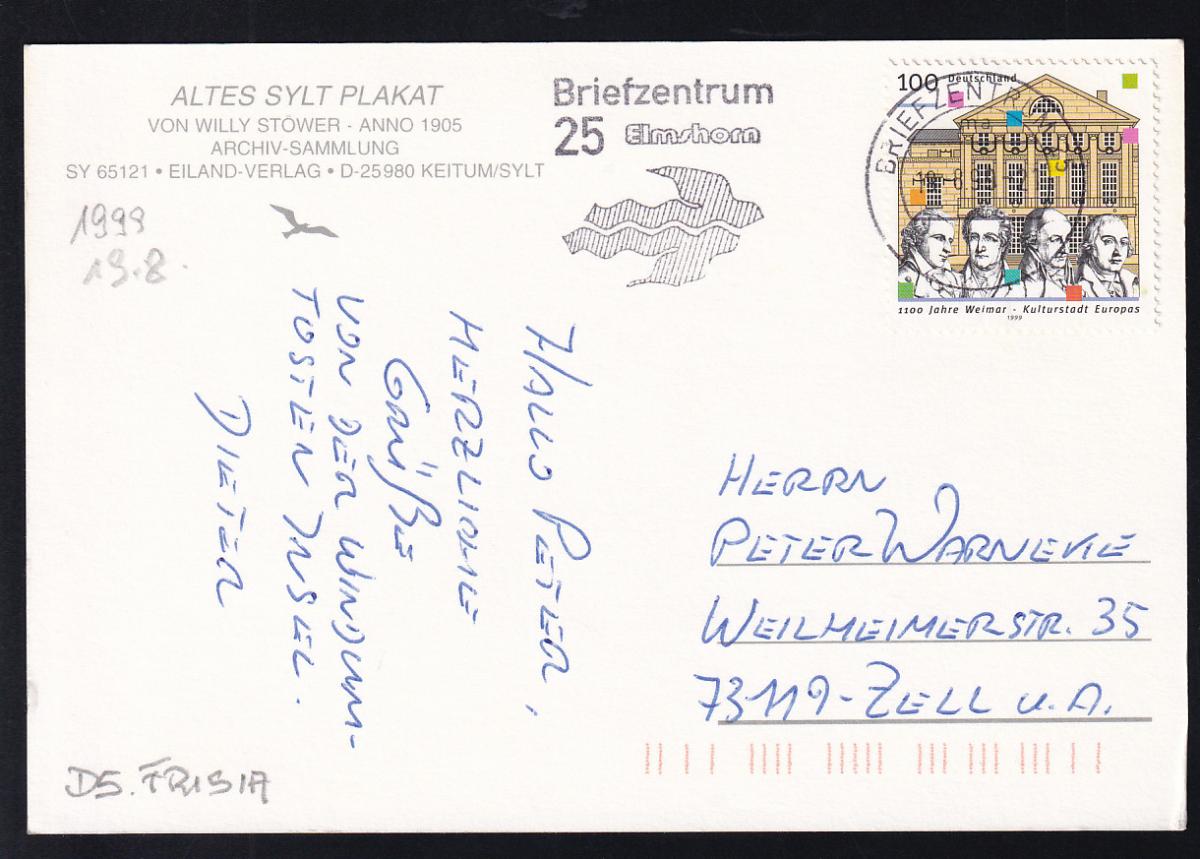 ALTES SYLT PLAKAT
VON WILLY STÖWER - ANNO 1905
ARCHIV-SAMMLUNG
SY 65121 • EILAND-VERLAG • D-25980 KEITUM/SYLT
1999
19.8.
Briefzentrum
25 Elmshorn
BRIEFZENTRUM
100 Deutschland
1100 Jahre Weimar - Kulturstadt Europas
1999
HALLO PETER,
HERZLICHE
GRÜßE
VON DER WINDUM-
TOSTEN INSEL.
DIETER
HERRN
PETER WARNEKE
WEILHEIMERSTR. 35
73119-ZELL u.A.
DS. FRISIA